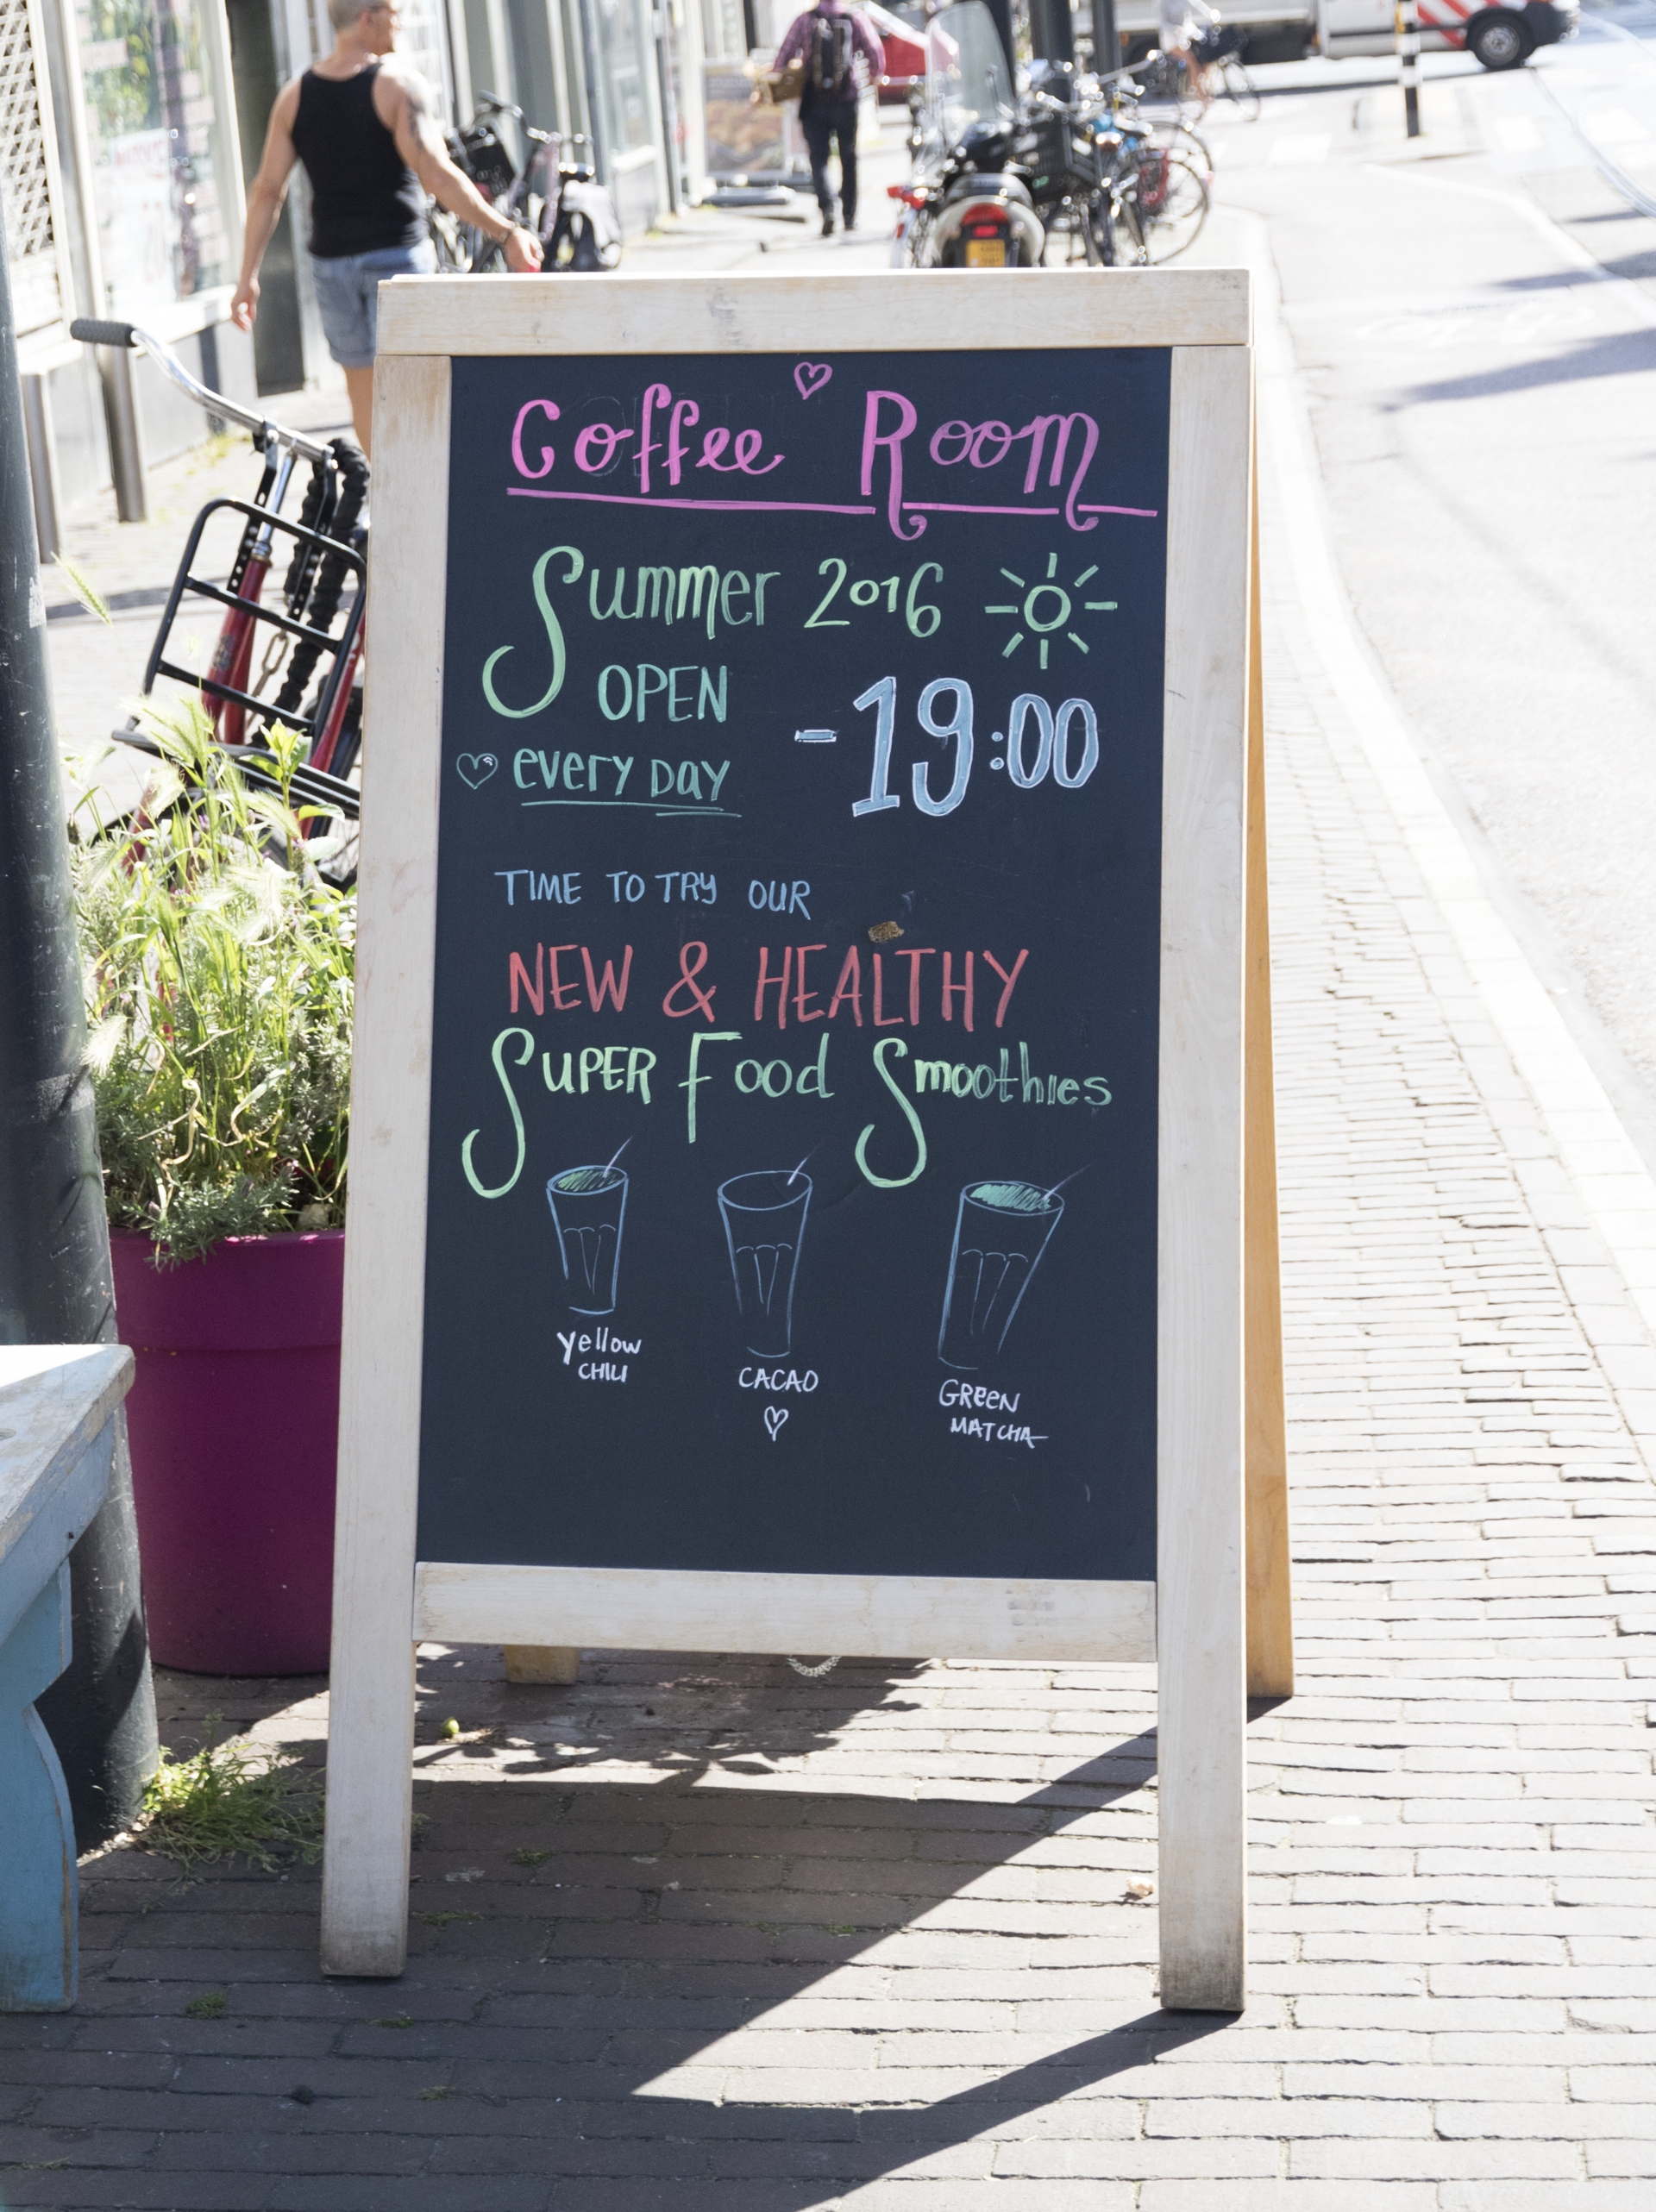 Coffee Room
Summer 2016
OPEN
every DAY
- 19:00
TIME TO TRY OUR
NEW & HEALTHY
SUPER Food Smoothies
yellow
CHILI
CACAO
GReeN
MATCHA